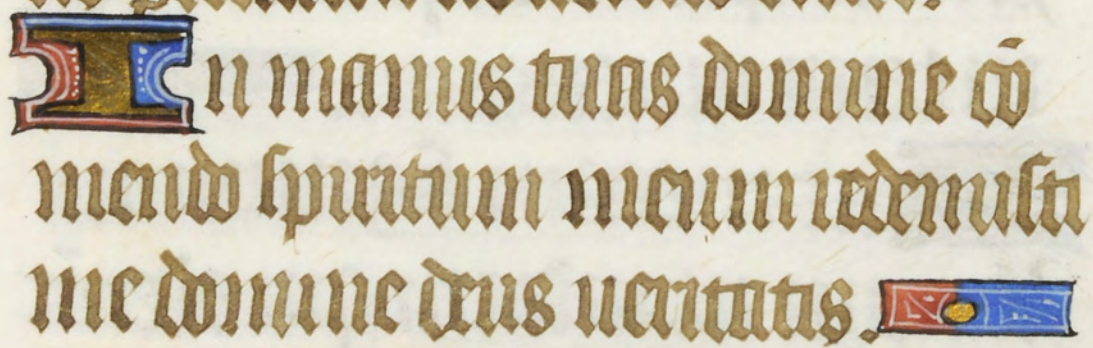 In manus tuas domine cō
mendo spiritum meum redemisti
me domine deus ueritatis.